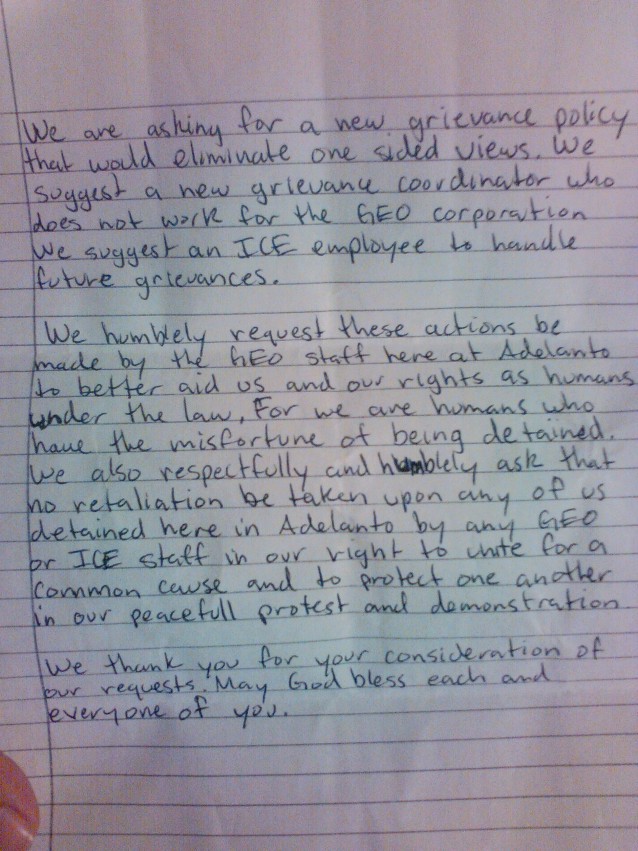 We are asking for a new grievance policy
that would eliminate one sided views. We
suggest a new grievance coordinator who
does not work for the GEO corporation
We suggest an ICE employee to handle
future grievances.
We humblely request these actions be
made by the GEO staff here at Adelanto
to better aid us and our rights as humans
under the law, For we are humans who
have the misfortune of being detained.
We also respectfully and humblely ask that
no retaliation be taken upon any of us
detained here in Adelanto by any GEO
or ICE staff in our right to unite for a
common cause and to protect one another
in our peacefull protest and demonstration.
We thank you for your consideration of
our requests. May God bless each and
everyone of you.